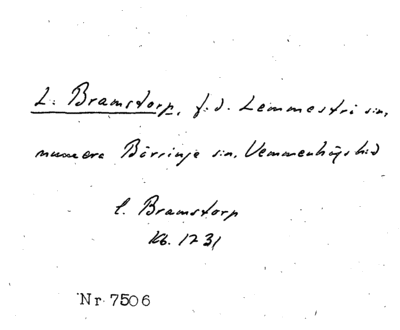 L. Bramstorp, f.d. Lemmeströ sn,
numera Börringe sn, Vemmenhögs hd
l. Bramstorp
Kb. 1731
Nr 7506